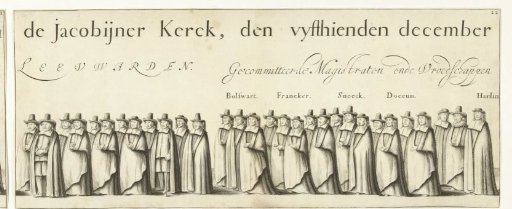 de Jacobijner Kerck, den vyffthienden december
LEEUWARDEN. Gecommitteerde Magistraten ende Vroedschappen
Bolswart. Franeker. Sneeck. Doccum. Harlin